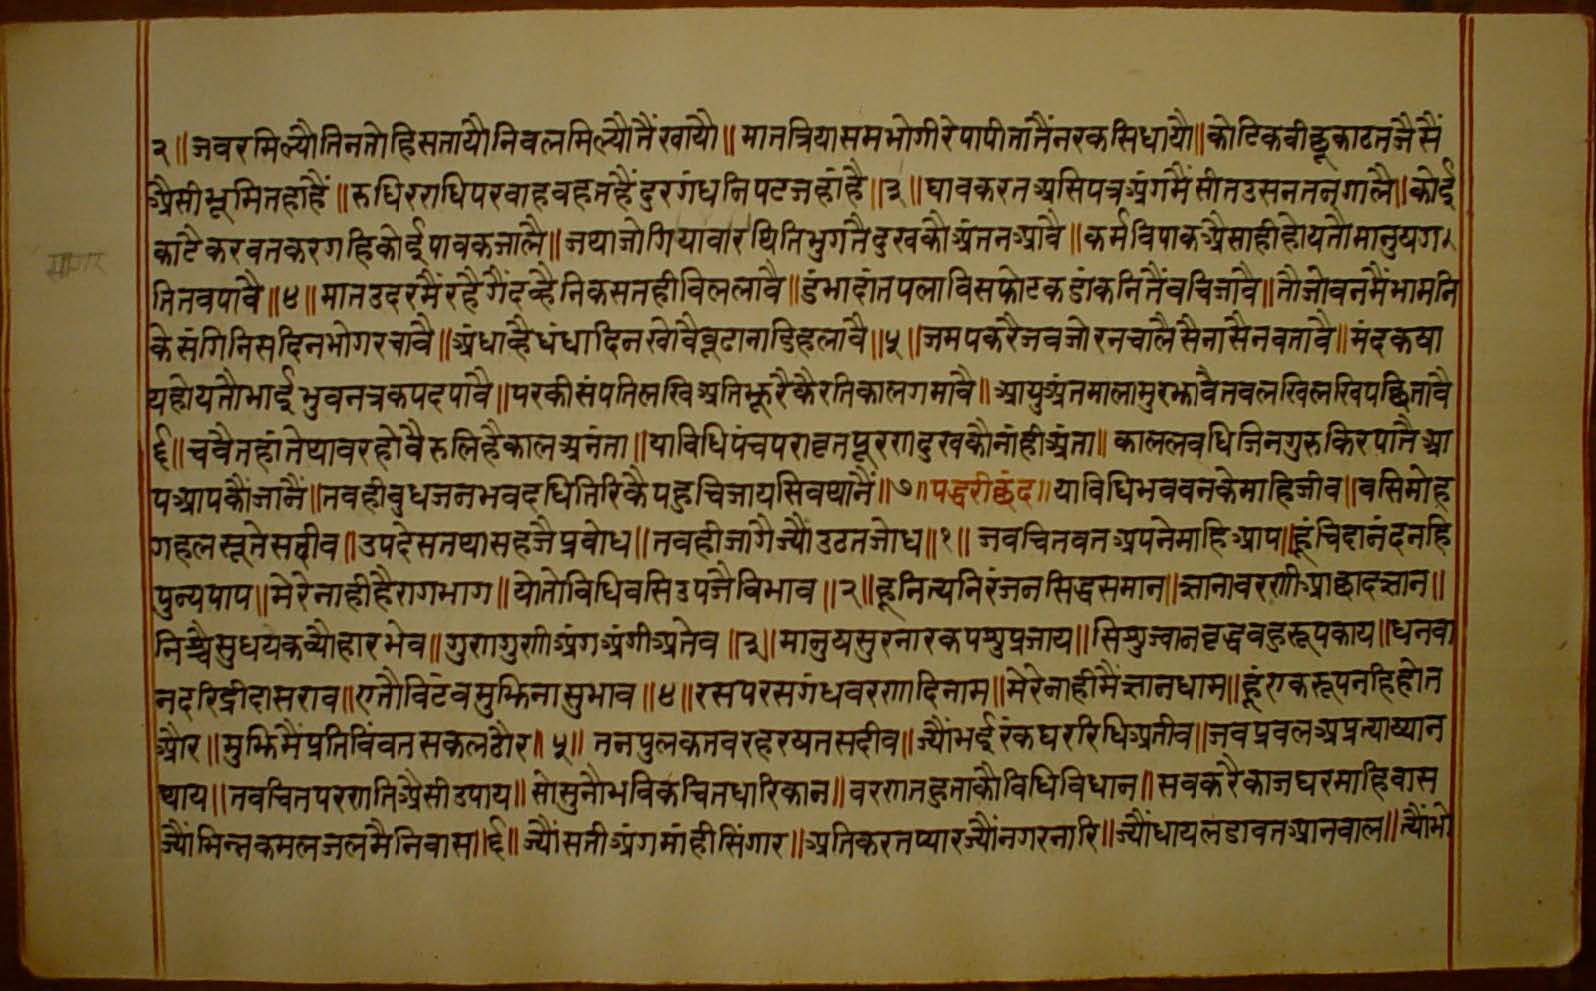 २॥ जवरमिल्यौतिनतोहिसतायौनिवलमिल्यौतैंखायौ॥ मातत्रियासमभोगीरेपापीतातैंनरकसिधायौ॥ कोटिकवीछूकाटतजैसैं
ऋैसीभूमितहाहैं॥ रुधिरराधिपरवाहवहतहैंदुरगंधनिपटजहांहै॥३॥ घावकरतऋसिपत्रऋंगमैंसीतउसनतनगालै॥ कोई
काटैकरवतकरगहिकोईपावकजालै॥ जथाजोगियावारथितिभुगतैदुखकौऋंतनऋावै॥ कर्मविपाकऋैसाहीहोयतौमानुषग
तितवपावै॥४॥ मातउदरमैंरहैगैंदव्हैनिकसतहीविललावै॥ डंभादांतपलाविसफोटकडांकनितैंवचिजावै॥ तौजोवनमैंभामनि
केसंगिनिसदिनभोगरचावै॥ ऋंधाव्हैधंधादिनखोवैवूढानाडिहलावै॥५॥ जमपकरैजवजोरनचालैसैनासैनवतावै॥ मंदकषा
यहोयतौभाईभुवनत्रकपदपावै॥ परकीसंपतिलखिऋतिझूरैकैरतिकालगमावै॥ ऋायुऋंतमालामुरझावैतवलखिलखिपछितावै
६॥ चवैतहांतेथावरहोवैरुलिहैकालऋनंता॥ याविधिपंचपरावृतपूरणदुखकौनांहीऋंता॥ काललवधिजिनगुरुकिरपातैऋा
पऋापकौंजानैं॥ तवहीवुधजनभवदधितिरिकैपहुचिजायसिवथानैं॥७॥ पद्धरीछंद॥ याविधिभववनकेमाहिजीव॥ वसिमोह
गहलसूतेसदीव॥ उपदेसतथासहजैप्रवोध॥ तवहीजागैज्यौंउठतजोध॥१॥ जवचितवतऋपनेमाहिऋाप॥ हूंचिदानंदनहि
पुन्यपाप॥ मेरेनाहीहैरागभाग॥ योतोविधिवसिउपजैविभाव॥२॥ हूनित्यनिरंजनसिद्धसमान॥ ज्ञानावरणीऋाछादज्ञान॥
निश्चैसुधयकव्यौहारभेव॥ गुणगुणीऋंगऋंगीऋतेव॥३॥ मानुषसुरनारकपशुप्रजाय॥ सिशुज्वानवृद्धवहुरूपकाय॥ धनवा
नदरिद्रीदासराव॥ एतौविटंवमुझिनासुभाव॥४॥ रसपरसगंधवरणादिनाम॥ मेरेनाहीमैंज्ञानधाम॥ हूंएकरूपनहिहोत
ऋौर॥ मुझिमैंप्रतिविंवतसकलठौर॥५॥ तनपुलकतवरहरषतसदीव॥ ज्यौंभईरंकघररिधिऋतीव॥ जवप्रवलऋप्रत्याख्यान
थाय॥ तवचितपरणतिऋैसीउपाय॥ सोसुनौभविकचितधारिकान॥ वरणतहुताकौविधिविधान॥ सवकरैकाजघरमाहिवास
ज्यौंभिन्नकमलजलमैनिवास॥६॥ ज्यौंसतीऋंगमांहीसिंगार॥ ऋतिकरतप्यारज्यौंनगरनारि॥ ज्यौंधायलडावतऋानवाल॥ त्यौंभो